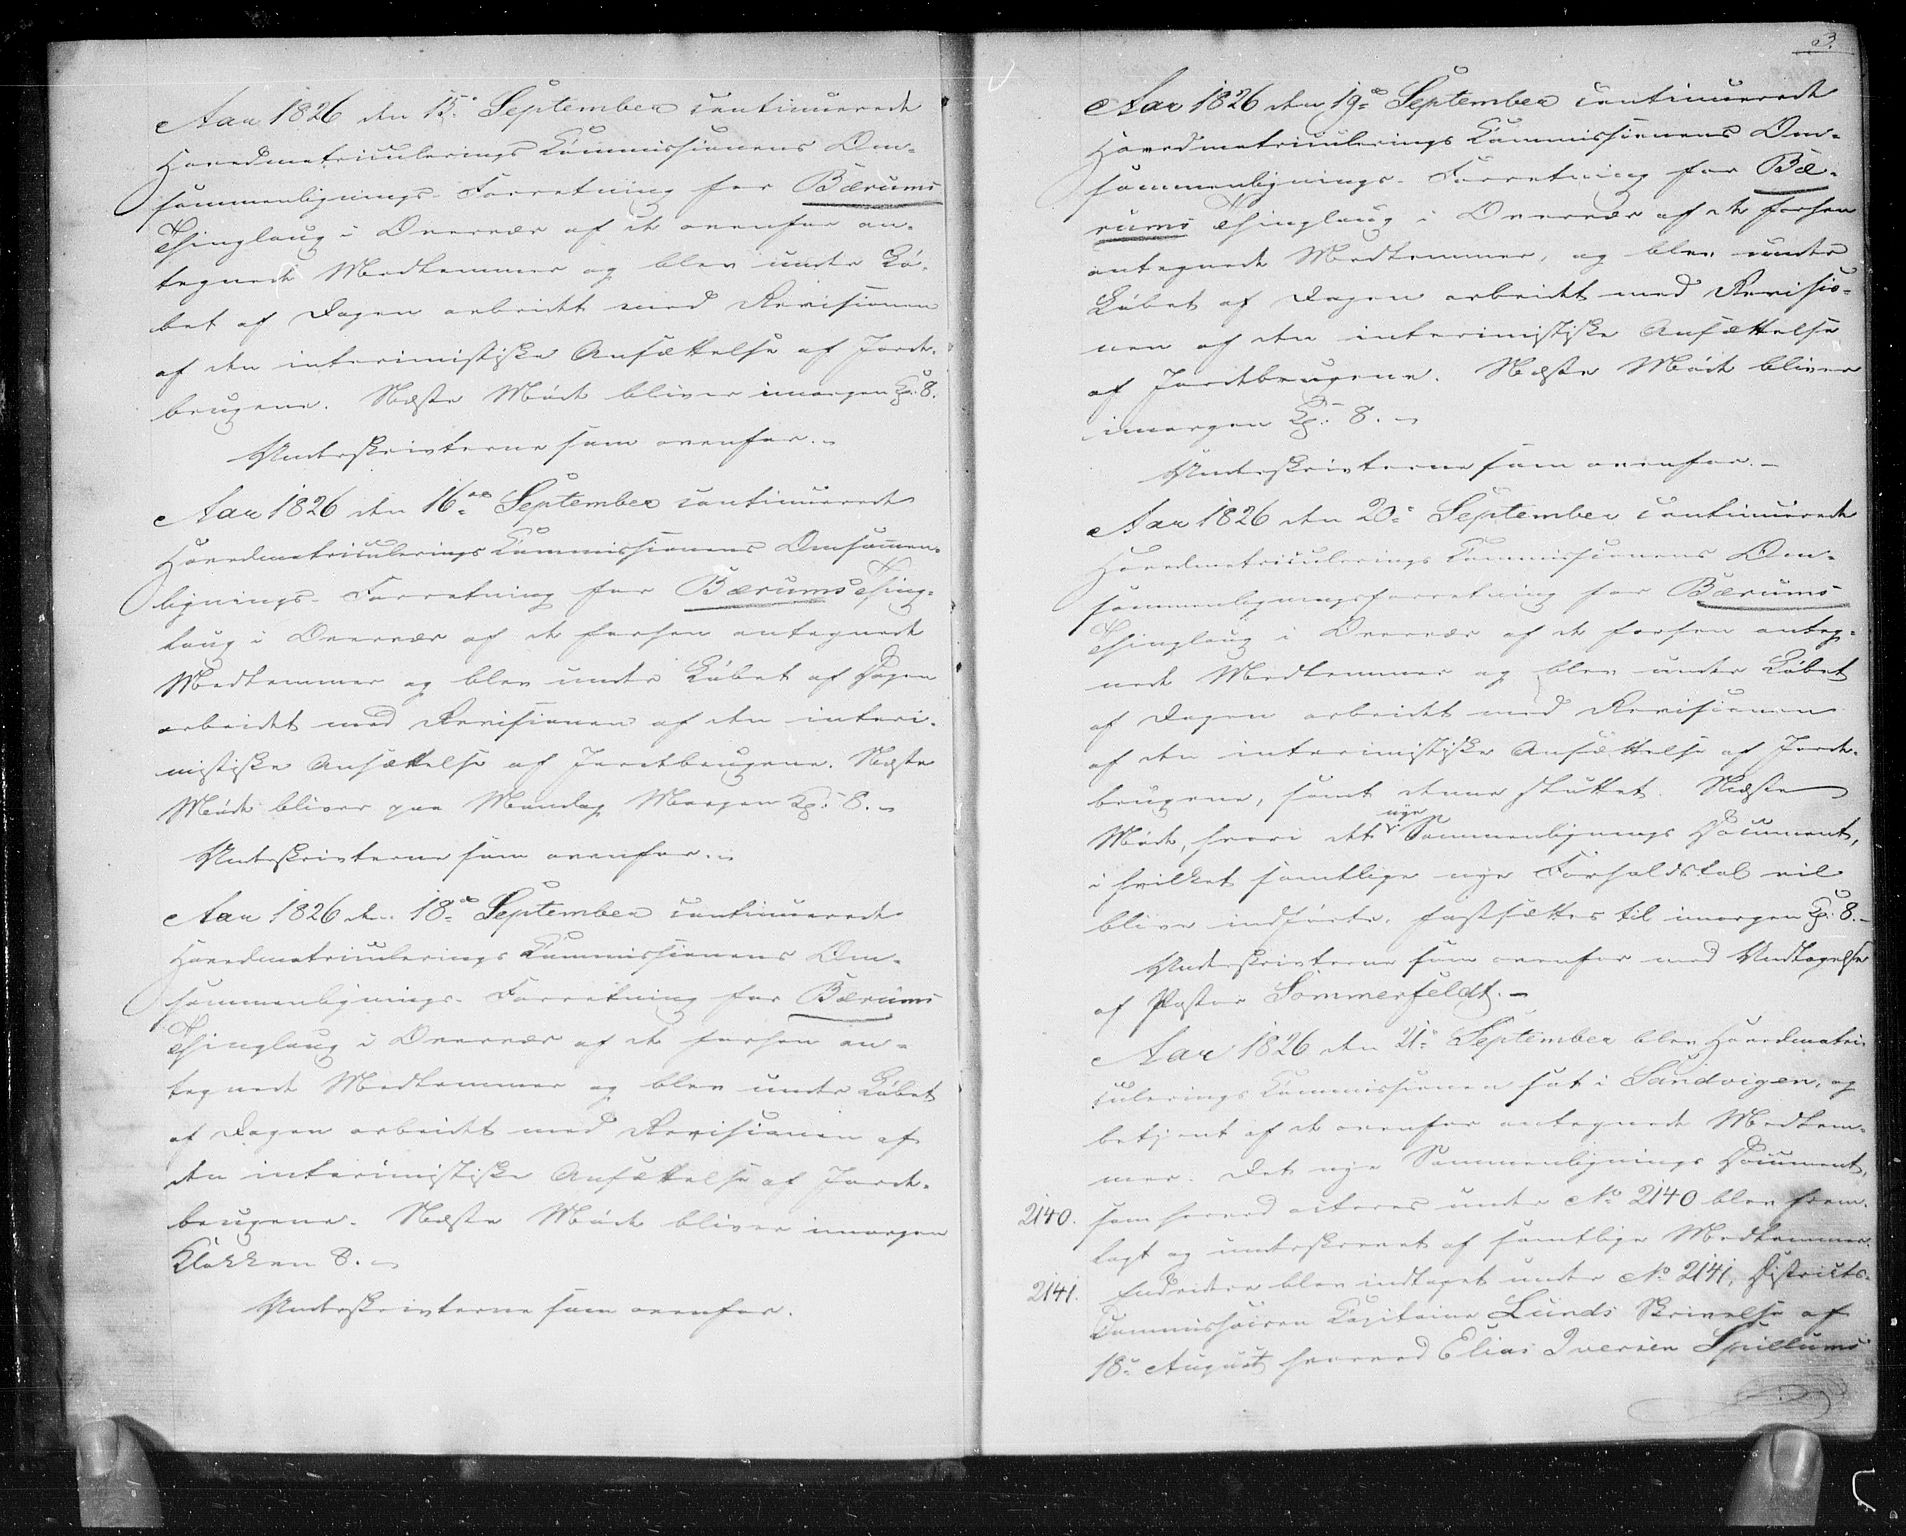 Aar 1826 den 15de September continuerede
Hovedmatriculerings Commissionens Om-
sammenlignings-Forretning for Bærums
Thinglaug i Overvær af de ovenfor an-
tegnede Medlemmer og blev under Lø-
bet af Dagen arbeidet med Revisionen
af den interimistiske Ansættelse af Jorde-
brugene. Næste Møde bliver imorgen Kl: 8.
Underskrivterne som ovenfor.
Aar 1826 den 16de September continuerede
Hovedmatriculerings Commissionens Omsammen-
lignings-Forretning for Bærums Thing-
laug i Overvær af de forhen antegnede
Medlemmer og blev under Løbet af Dagen
arbeidet med Revisionen af den interi-
mistiske Ansættelse af Jordebrugene. Næste
Møde bliver paa Mandag Morgen Kl: 8.
Underskrivterne som ovenfor.
Aar 1826 den 18de September continuerede
Hovedmatriculerings Commissionens Om-
sammenlignings-Forretning for Bærums
Thinglaug i Overvær af de forhen an-
tegnede Medlemmer og blev under Løbet
af Dagen arbeidet med Revisionen af
den interimistiske Ansættelse af Jorde-
brugene. Næste Møde bliver imorgen
Klokken 8.
Underskrivterne som ovenfor.
3.
Aar 1826 den 19de September continuerede
Hovedmatriculerings Commissionens Om-
sammenlignings-Forretning for Bæ-
rums Thinglaug i Overvær af de forhen
antegnede Medlemmer, og blev under
Løbet af Dagen arbeidet med Revisio-
nen af den interimistiske Ansættelse
af Jordebrugene. Næste Møde bliver
imorgen Kl: 8.
Underskrivterne som ovenfor.
Aar 1826 den 20de September continuerede
Hovedmatriculerings Commissionens Om-
sammenligningsforretning for Bærums
Thinglaug i Overvær af de forhen anteg-
nede Medlemmer og blev under Løbet
af Dagen arbeidet med Revisionen
af den interimistiske Ansættelse af Jorde-
brugene, samt denne sluttet. Næste
Møde, hvori det nye Sammenlignings Document,
i hvilket samtlige nye Forholdstal vil
blive indførte, fastsættes til imorgen Kl: 8.
Underskrivterne som ovenfor med Undtagelse
af Pastor Sommerfeldt.
Aar 1826 den 21de September blev Hovedmatri-
culerings Commissionen sat i Sandvigen, og
betjent af de ovenfor antegnede Medlem-
mer. Det nye Sammenlignings Document,
2140. som herved acteres under No 2140 blev frem-
lagt og underskrevet af samtlige Medlemmer.
2141. Endvidere blev indtaget under No 2141, Districts-
Commissairen Capitaine Lunds Skrivelse af
18de August hvorved Elias Iversen Spillums